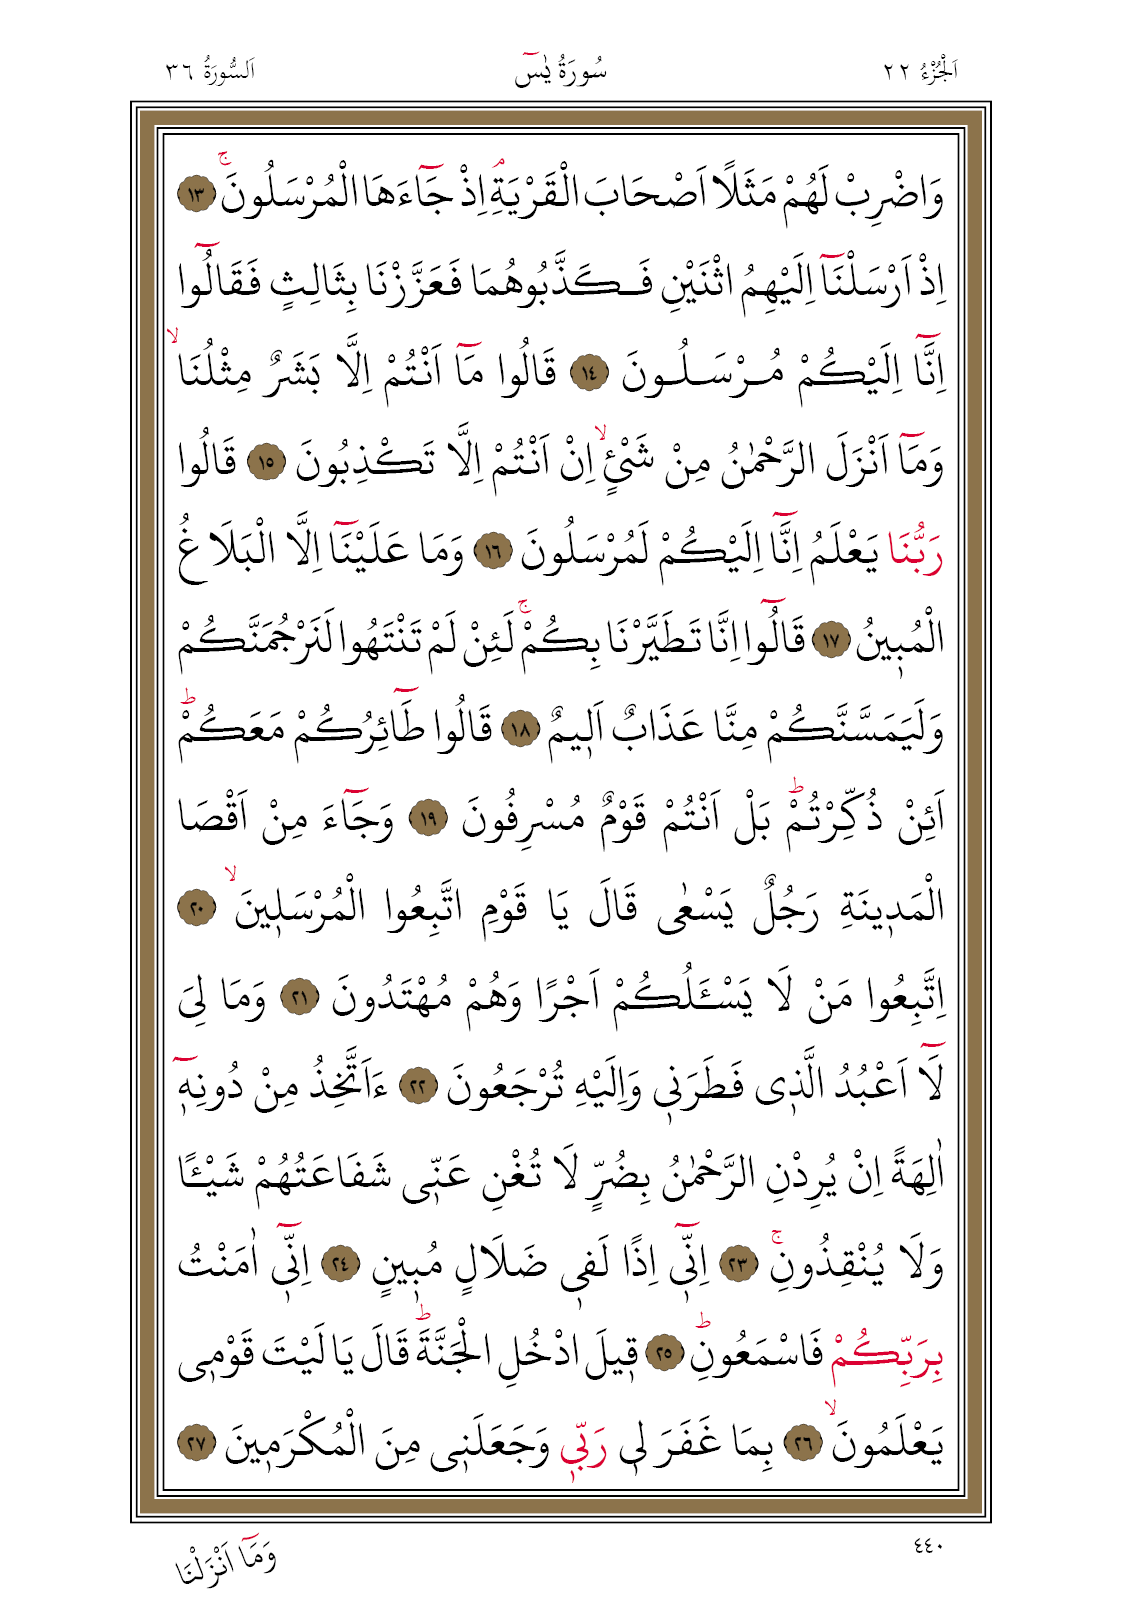 اَلْجُزْءُ ٢٢ سُورَةُ يٰسٓ اَلسُّورَةُ ٣٦
وَاضْرِبْ لَهُمْ مَثَلًا اَصْحَابَ الْقَرْيَةِۢ اِذْ جَٓاءَهَا الْمُرْسَلُونَۚ ﴿١٣﴾
اِذْ اَرْسَلْنَٓا اِلَيْهِمُ اثْنَيْنِ فَكَذَّبُوهُمَا فَعَزَّزْنَا بِثَالِثٍ فَقَالُٓوا
اِنَّٓا اِلَيْكُمْ مُرْسَلُونَ ﴿١٤﴾ قَالُوا مَٓا اَنْتُمْ اِلَّا بَشَرٌ مِثْلُنَاۙ
وَمَٓا اَنْزَلَ الرَّحْمٰنُ مِنْ شَيْءٍۙ اِنْ اَنْتُمْ اِلَّا تَكْذِبُونَ ﴿١٥﴾ قَالُوا
رَبُّنَا يَعْلَمُ اِنَّٓا اِلَيْكُمْ لَمُرْسَلُونَ ﴿١٦﴾ وَمَا عَلَيْنَٓا اِلَّا الْبَلَاغُ
الْمُب۪ينُ ﴿١٧﴾ قَالُٓوا اِنَّا تَطَيَّرْنَا بِكُمْۚ لَئِنْ لَمْ تَنْتَهُوا لَنَرْجُمَنَّكُمْ
وَلَيَمَسَّنَّكُمْ مِنَّا عَذَابٌ اَل۪يمٌ ﴿١٨﴾ قَالُوا طَٓائِرُكُمْ مَعَكُمْۜ
اَئِنْ ذُكِّرْتُمْۜ بَلْ اَنْتُمْ قَوْمٌ مُسْرِفُونَ ﴿١٩﴾ وَجَٓاءَ مِنْ اَقْصَا
الْمَد۪ينَةِ رَجُلٌ يَسْعٰى قَالَ يَا قَوْمِ اتَّبِعُوا الْمُرْسَل۪ينَۙ ﴿٢٠﴾
اِتَّبِعُوا مَنْ لَا يَسْـَٔلُكُمْ اَجْرًا وَهُمْ مُهْتَدُونَ ﴿٢١﴾ وَمَا لِيَ
لَٓا اَعْبُدُ الَّذ۪ى فَطَرَن۪ي وَاِلَيْهِ تُرْجَعُونَ ﴿٢٢﴾ ءَاَتَّخِذُ مِنْ دُونِه۪ٓ
اٰلِهَةً اِنْ يُرِدْنِ الرَّحْمٰنُ بِضُرٍّ لَا تُغْنِ عَنّ۪ى شَفَاعَتُهُمْ شَيْـًٔا
وَلَا يُنْقِذُونِۚ ﴿٢٣﴾ اِنّ۪ٓي اِذًا لَف۪ي ضَلَالٍ مُب۪ينٍ ﴿٢٤﴾ اِنّ۪ٓي اٰمَنْتُ
بِرَبِّكُمْ فَاسْمَعُونِۜ ﴿٢٥﴾ ق۪يلَ ادْخُلِ الْجَنَّةَۜ قَالَ يَا لَيْتَ قَوْم۪ى
يَعْلَمُونَۙ ﴿٢٦﴾ بِمَا غَفَرَ ل۪ي رَبّ۪ي وَجَعَلَن۪ى مِنَ الْمُكْرَم۪ينَ ﴿٢٧﴾
٤٤٠
وَمَٓا اَنْزَلْنَا